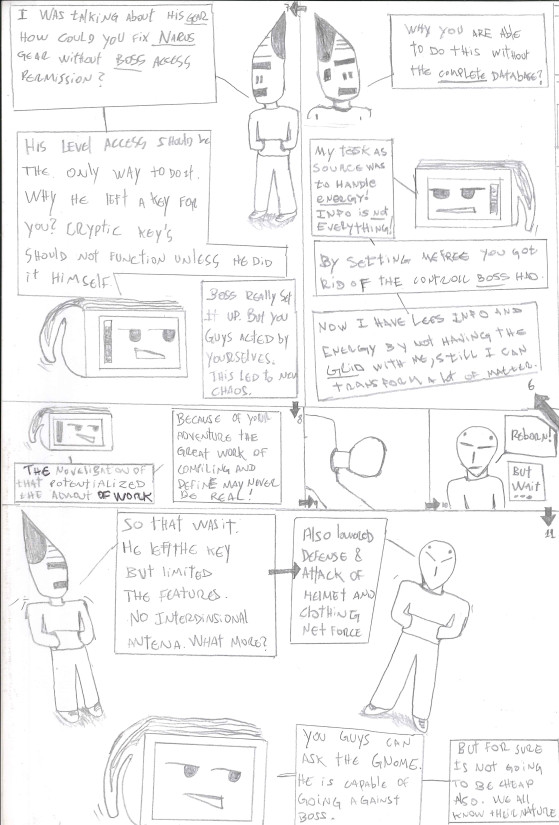 I WAS TALKING ABOUT HIS GEAR
HOW COULD YOU FIX NARUS
GEAR WITHOUT BOSS ACCESS
PERMISSION?
7
WHY YOU ARE ABLE
TO DO THIS WITHOUT
THE COMPLETE DATABASE?
HIS LEVEL ACCESS SHOULD BE
THE ONLY WAY TO DO IT.
WHY HE LEFT A KEY FOR
YOU? CRYPTIC KEY'S
SHOULD NOT FUNCTION UNLESS HE DID
IT HIMSELF
MY TASK AS
SOURCE WAS
TO HANDLE
ENERGY!
INFO IS NOT
EVERYTHING!
BY SETTING ME FREE YOU GOT
RID OF THE CONTROLL BOSS HAD.
BOSS REALLY SET
IT UP. BUT YOU
GUYS ACTED BY
YOURSELVES.
THIS LED TO NEW
CHAOS.
NOW I HAVE LESS INFO AND
ENERGY BY NOT HAVING THE
WITH ME, STILL I CAN
TRANSFORM A LOT OF MATTER.
6
8
THE OF
THAT POTENTIALIZED
THE ADVENT OF WORK
BECAUSE OF YOUR
ADVENTURE THE
GREAT WORK OF
COMPILING AND
DEFINE MAY NEVER
BE REAL!
9
10
REBORN!
BUT
WAIT
...
11
SO THAT WAS IT.
HE LEFT THE KEY
BUT LIMITED
THE FEATURES.
NO INTERDINSIONAL
ANTENA. WHAT MORE?
ALSO LOWERED
DEFENSE &
ATTACK OF
HELMET AND
CLOTHING
NET FORCE
YOU GUYS CAN
ASK THE GNOME.
HE IS CAPABLE OF
GOING AGAINST
BOSS.
BUT FOR SURE
IS NOT GOING
TO BE CHEAP
ALSO. WE ALL
KNOW THEIR NATURE